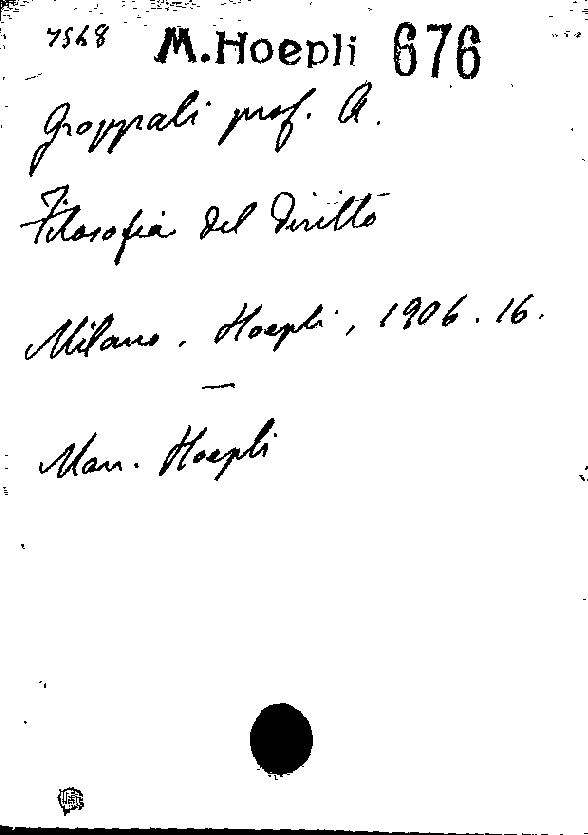 7568 M.Hoepli 676
Groppali prof. A.
Filosofia del diritto
Milano. Hoepli, 1906. 16.
Man. Hoepli